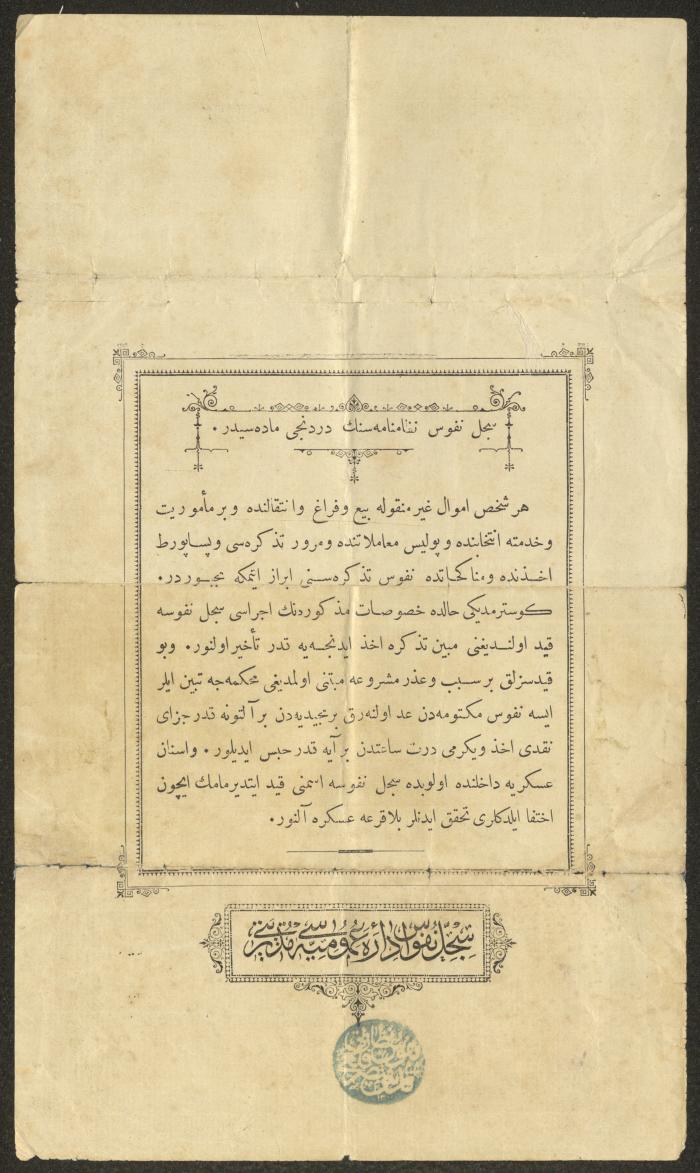 سجل نفوس نظامنامه‌سنك دردنجی ماده‌سیدر ٠
هر شخص اموال غیر منقوله بیع و فراغ وانتقالنده و بر مأموریت
و خدمته انتخابنده و پولیس معاملاتنده و مرور تذكره‌سی و پساپورط
اخذنده و مناكحاتده نفوس تذكره‌سنی ابراز ایتمكه مجبوردر ٠
كوسترمدیكی حالده خصوصات مذكوره‌نك اجراسی سجل نفوسه
قید اولندیغنی مبین تذكره اخذ ایدنجه‌یه قدر تأخیر اولنور ٠ وبو
قیدسزلق بر سبب و عذر مشروعه مبتنی اولمدیغی محكمه‌جه تبین ایلر
ایسه نفوس مكتومه‌دن عد اولنه‌رق بر مجیدیه‌دن بر آلتونه قدر جزای
نقدی اخذ و یكرمی درت ساعتدن بر آیه قدر حبس ایدیلور ٠ واسنان
عسكریه داخلنده اولوبده سجل نفوسه اسمنی قید ایتدیرمامك ایچون
اختفا ایلدكلری تحقق ایدنلر بلا قرعه عسكره آلنور ٠
سجل نفوس اداره عمومیه‌سی مدیریتی